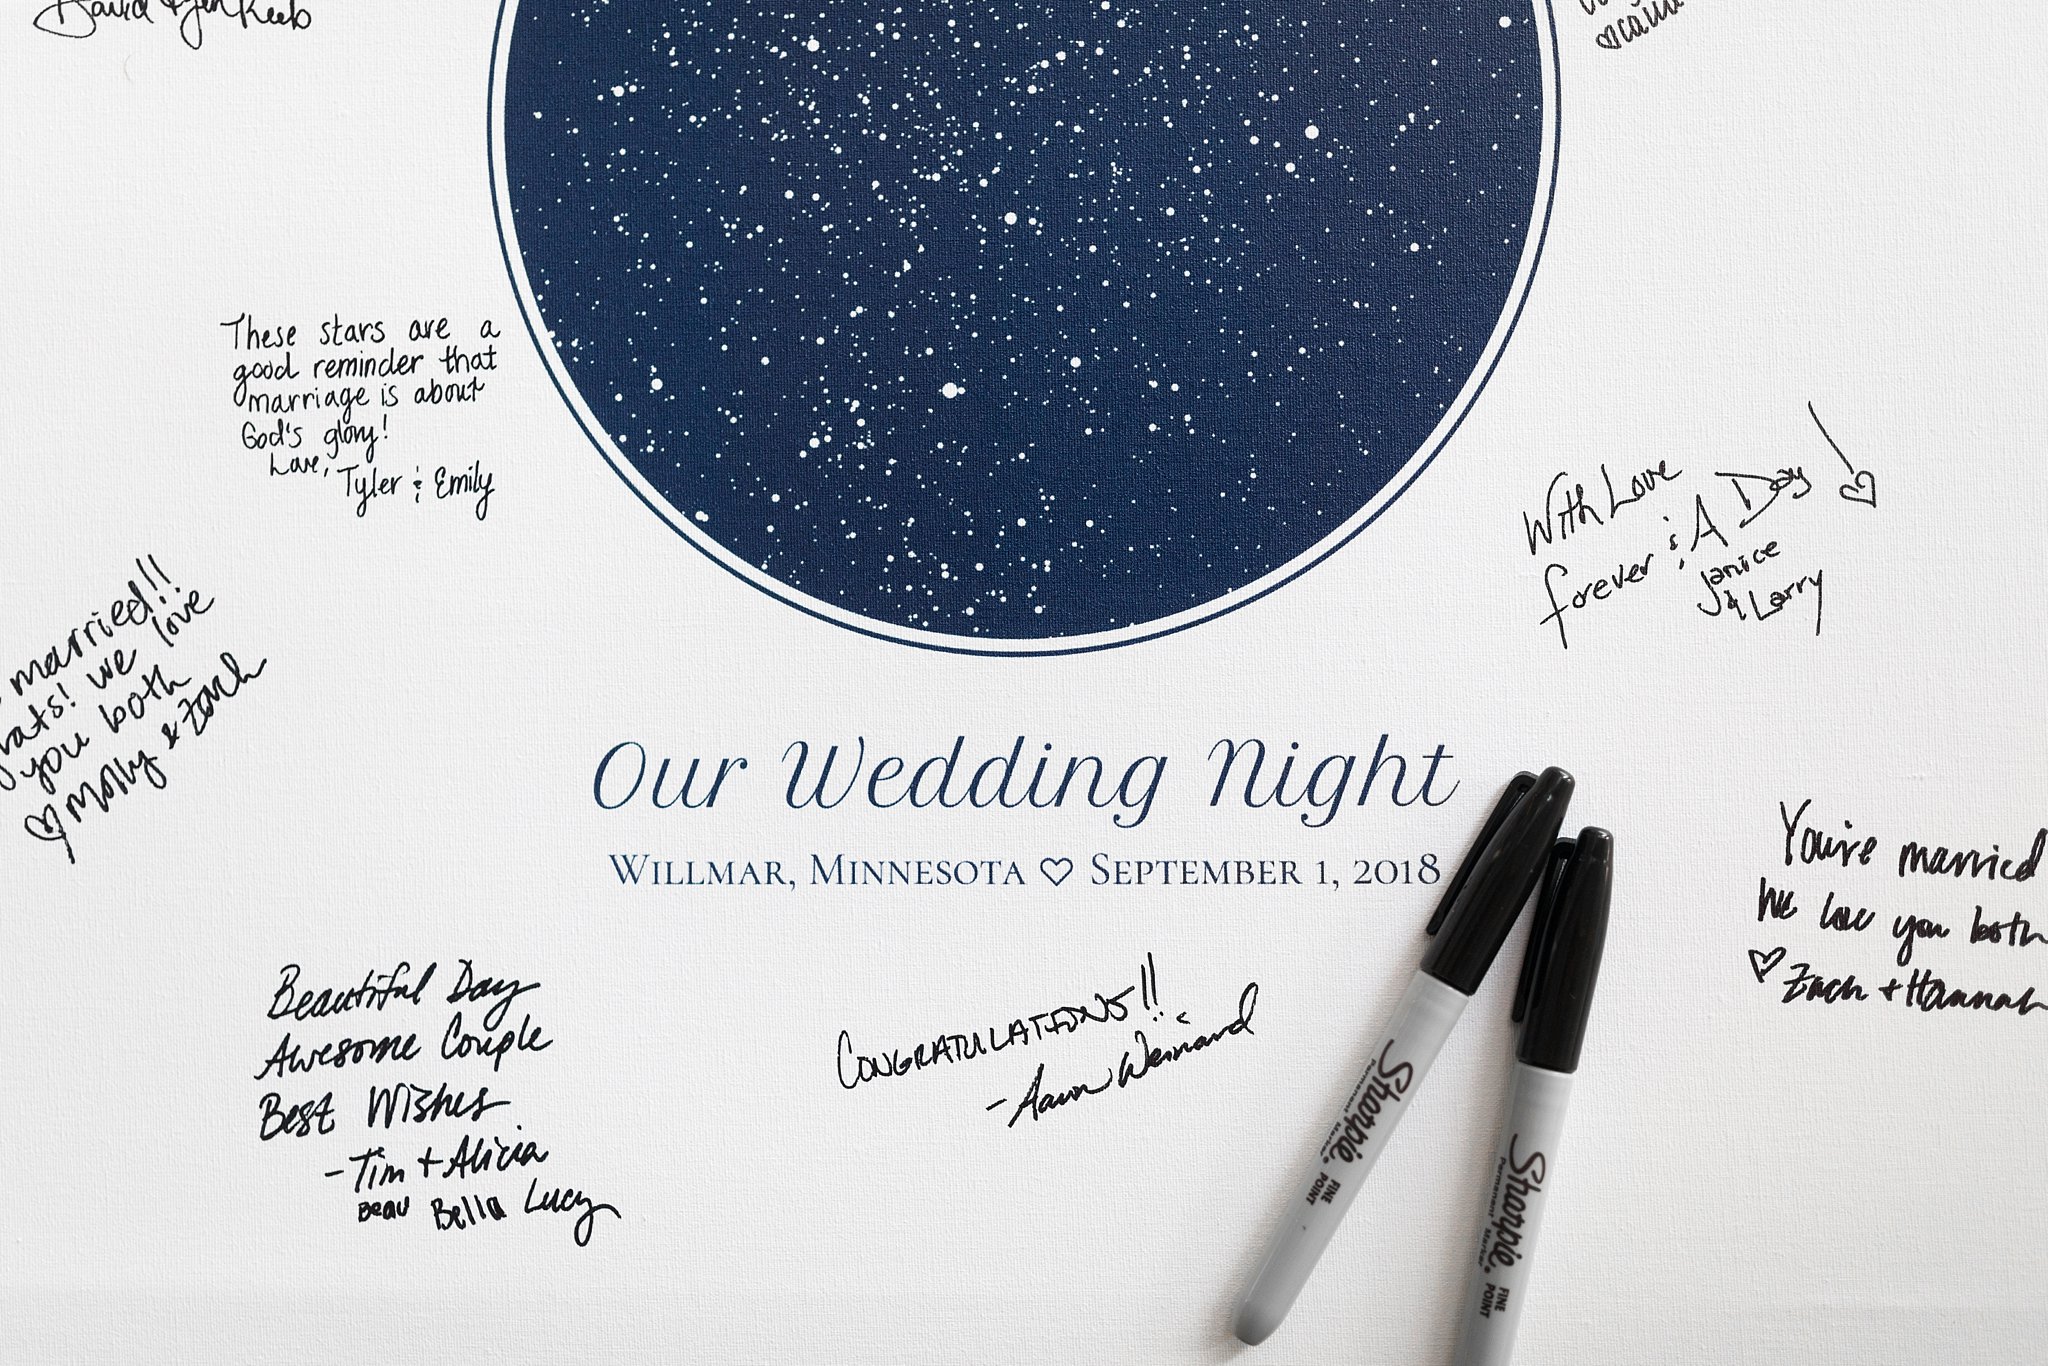 David & Jen
These stars are a
good reminder that
marriage is about
God's glory!
Love,
Tyler & Emily
With Love
forever & A Day!
Janice
& Larry
married!!
we love
you both
♡ Molly & Zach
Our Wedding Night
Willmar, Minnesota ♡ September 1, 2018
You're married
We love you both
♡ Zach + Hannah
Beautiful Day
Awesome Couple
Best Wishes
- Tim + Alicia
Beau Bella Lucy
Congratulations!!
- Aaron Weinand
Sharpie.
Permanent Marker
FINE
POINT
Sharpie.
Permanent Marker
FINE
POINT